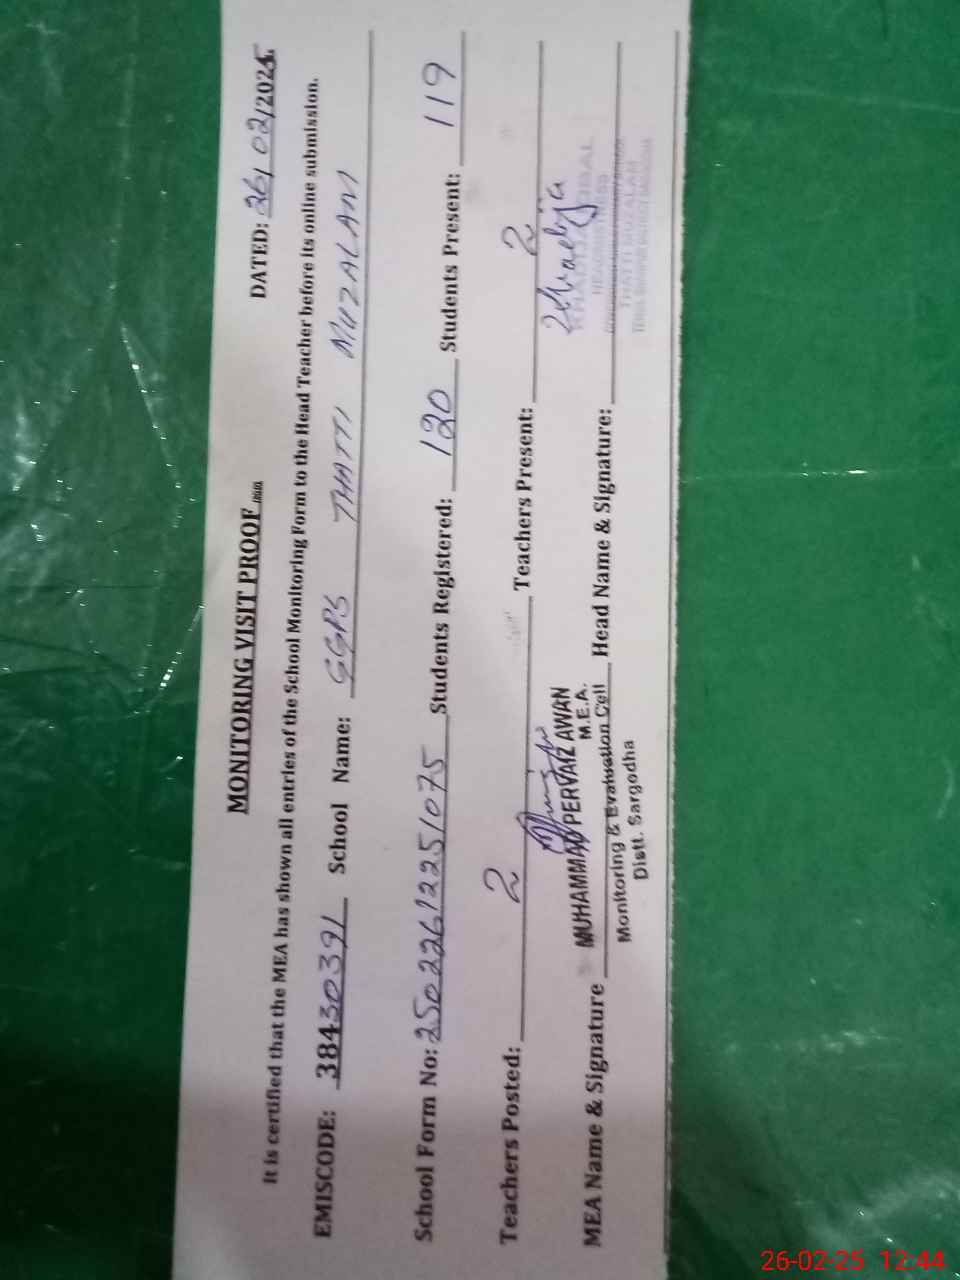 MONITORING VISIT PROOF
DATED: 26/02/2025.
It is certified that the MEA has shown all entries of the School Monitoring Form to the Head Teacher before its online submission.
EMISCODE: 38430391 School Name: GGPS THATTI MUZALAM
School Form No: 25022612251075 Students Registered: 120 Students Present: 119
Teachers Posted: 2 Teachers Present: 2
MEA Name & Signature MUHAMMAD PERVAIZ AWAN Head Name & Signature:
M.E.A.
Monitoring & Evaluation Cell
Distt. Sargodha
HEADMISTRESS
THATTI MUZALAM
26-02-25 12:44